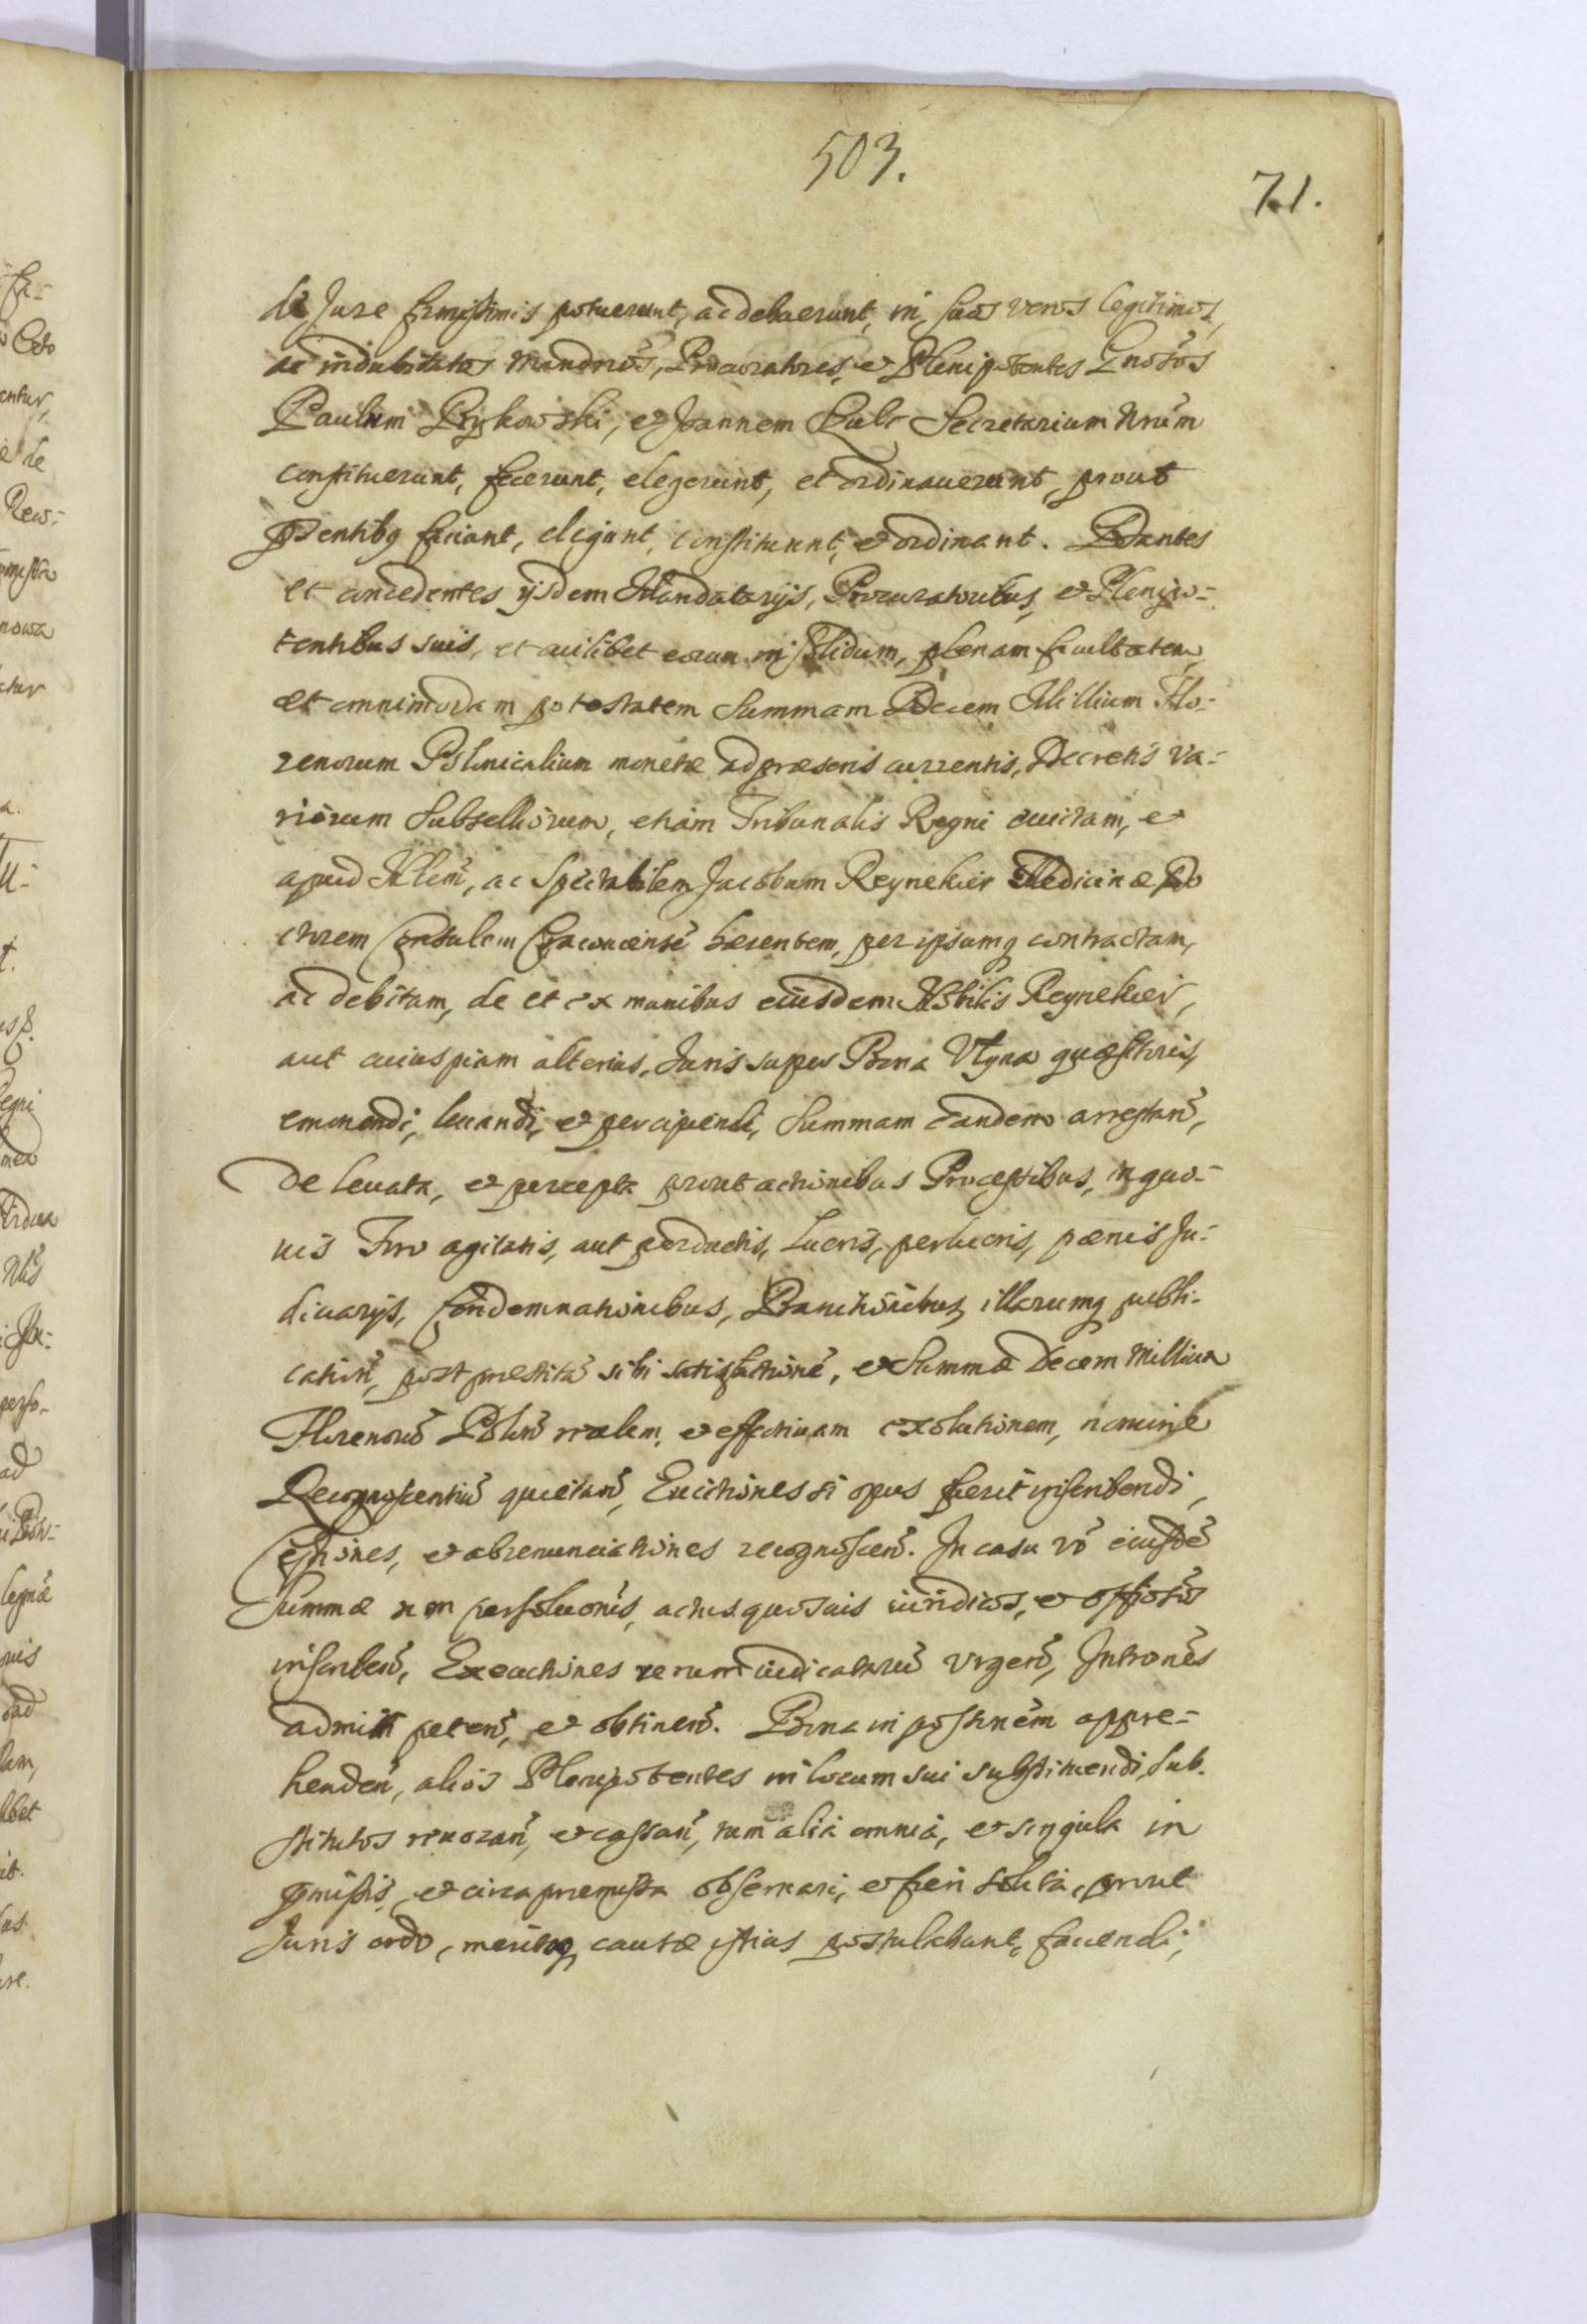 503.
71.
de Jure firmissimis potuerunt, ac debuerunt, in suos veros legitimos,
ac indubitatos Mandrios, Procuratores, et Plenipotentes Gnosos
Paulum Rykowski, et Joannem Kulc Secretarium Nrum
constituerunt, fecerunt, elegerunt, et ordinauerunt, prout
pntibus faciunt, eligunt, constituunt, et ordinant. Dantes
et concedentes ijsdem Mandatarijs, Procuratoribus, et Plenipo-
tentibus suis, et cuilibet eorum in solidum, plenam facultatem,
et omnimodam potestatem Summam Decem Millium Flo-
renorum Polonicalium monetæ ad præsens currentis, Decretis va-
riorum Subselliorum, etiam Tribunalis Regni euictam, et
apud Nlem, ac Spectabilem Jacobum Reynekier Medicinæ Do
ctorem Consulem Cracouiensē hærentem, per ipsumq contractam,
ac debitam, de et ex manibus eiusdem Nobilis Reynekier,
aut cuiuspiam alterius, Juris super Bona Vtyna quæsitoris,
emonendi, leuandi, et percipiendi, Summam eandem arrestan̄,
De leuata, et percepta prout actionibus Processibus, in quo-
uis Foro agitatis, aut perductis, Lucris, perlucris, pœnis Ju-
diciarijs, Condemnationibus, Bannitionibus, illarumq publi-
cation̄, post præstitā sibi satisfactionē, et Summæ Decem Millium
Florenorū Polon̄ realem, et effectiuam exolutionem, nomine
Recognoscentiū quietan̄, Euictiones si opus fuerit inscribendi,
Cessiones, et abrenunciationes recognoscen̄. In casu vō eiusdē
Summæ non persolutionis, actus quosuis iuridicos, et officiosos
inscriben̄, Executiones rerum iudicatarū vrgen̄, Intromes
admitti peten̄, et obtinen̄. Bona in possnem appre-
henden̄, alios Plenipotentes in locum sui substituendi, sub-
stitutos reuocan̄, et cassan̄, tum alia omnia, et singula in
pmissis, et circa præmissa obseruari, et fieri solita, prout
Juris ordo, meritaq causæ istius postulabunt, faciendi,